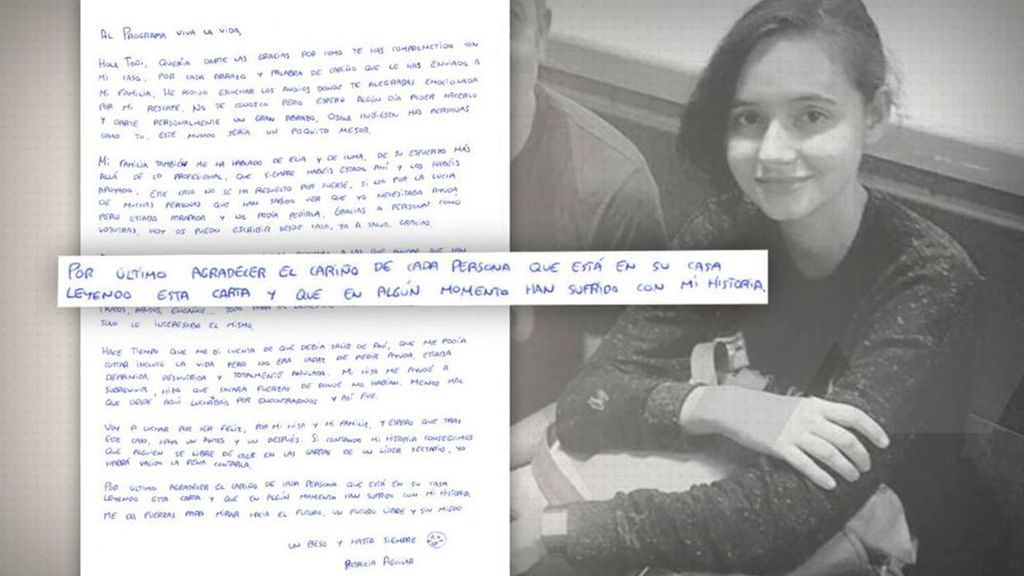 AL PROGRAMA VIVA LA VIDA,
HOLA TOÑI, QUERÍA DARTE LAS GRACIAS POR COMO TE HAS COMPROMETIDO CON
MI CASO, POR CADA ABRAZO Y PALABRA DE CARIÑO QUE LE HAS ENVIADO A
MI FAMILIA. HE PODIDO ESCUCHAR LOS AUDIOS DONDE TE ALEGRABAS EMOCIONADA
POR MI RESCATE. NO TE CONOZCO PERO ESPERO ALGÚN DÍA PODER HACERLO
Y DARTE PERSONALMENTE UN GRAN ABRAZO. OJALÁ HUBIESEN MÁS PERSONAS
COMO TU, ESTE MUNDO SERÍA UN POQUITO MEJOR.
MI FAMILIA TAMBIÉN ME HA HABLADO DE ELIA Y DE INMA, DE SU ESFUERZO MÁS
ALLÁ DE LO PROFESIONAL, QUE SIEMPRE HABÉIS ESTADO AHÍ Y LOS HABÉIS
APOYADO. ESTE CASO NO SE HA RESUELTO POR SUERTE, SI NO POR LA LUCHA
DE MUCHAS PERSONAS QUE HAN SABIDO VER QUE YO NECESITABA AYUDA
PERO ESTABA ATRAPADA Y NO PODÍA PEDIRLA. GRACIAS A PERSONAS COMO
VOSOTRAS, HOY OS PUEDO ESCRIBIR DESDE CASA, YA A SALVO. GRACIAS.
POR ÚLTIMO AGRADECER EL CARIÑO DE CADA PERSONA QUE ESTÁ EN SU CASA
LEYENDO ESTA CARTA Y QUE EN ALGÚN MOMENTO HAN SUFRIDO CON MI HISTORIA.
SOLO LE INTERESABA EL MISMO.
HACE TIEMPO QUE ME DI CUENTA DE QUE DEBÍA SALIR DE AHÍ, QUE ME PODÍA
COSTAR INCLUSO LA VIDA PERO NO ERA CAPAZ DE PEDIR AYUDA, ESTABA
DEPRIMIDA, DESNUTRIDA Y TOTALMENTE ANULADA. MI HIJA ME AYUDÓ A
SOBREVIVIR, HIZO QUE SACARA FUERZAS DE DONDE NO HABÍAN. MENOS MAL
QUE DESDE AQUÍ LUCHÁBAIS POR ENCONTRARNOS Y ASÍ FUE.
VOY A LUCHAR POR SER FELIZ, POR MI HIJA Y MI FAMILIA, Y ESPERO QUE TRAS
ESTE CASO, HAYA UN ANTES Y UN DESPUÉS. SI CONTANDO MI HISTORIA CONSEGUIMOS
QUE ALGUIEN SE LIBRE DE CAER EN LAS GARRAS DE UN LÍDER SECTARIO, YA
HABRÁ VALIDO LA PENA CONTARLA.
POR ÚLTIMO AGRADECER EL CARIÑO DE CADA PERSONA QUE ESTÁ EN SU CASA
LEYENDO ESTA CARTA Y QUE EN ALGÚN MOMENTO HAN SUFRIDO CON MI HISTORIA,
ME DA FUERZAS PARA MIRAR HACIA EL FUTURO, UN FUTURO LIBRE Y SIN MIEDO
UN BESO Y HASTA SIEMPRE
PATRICIA AGUILAR